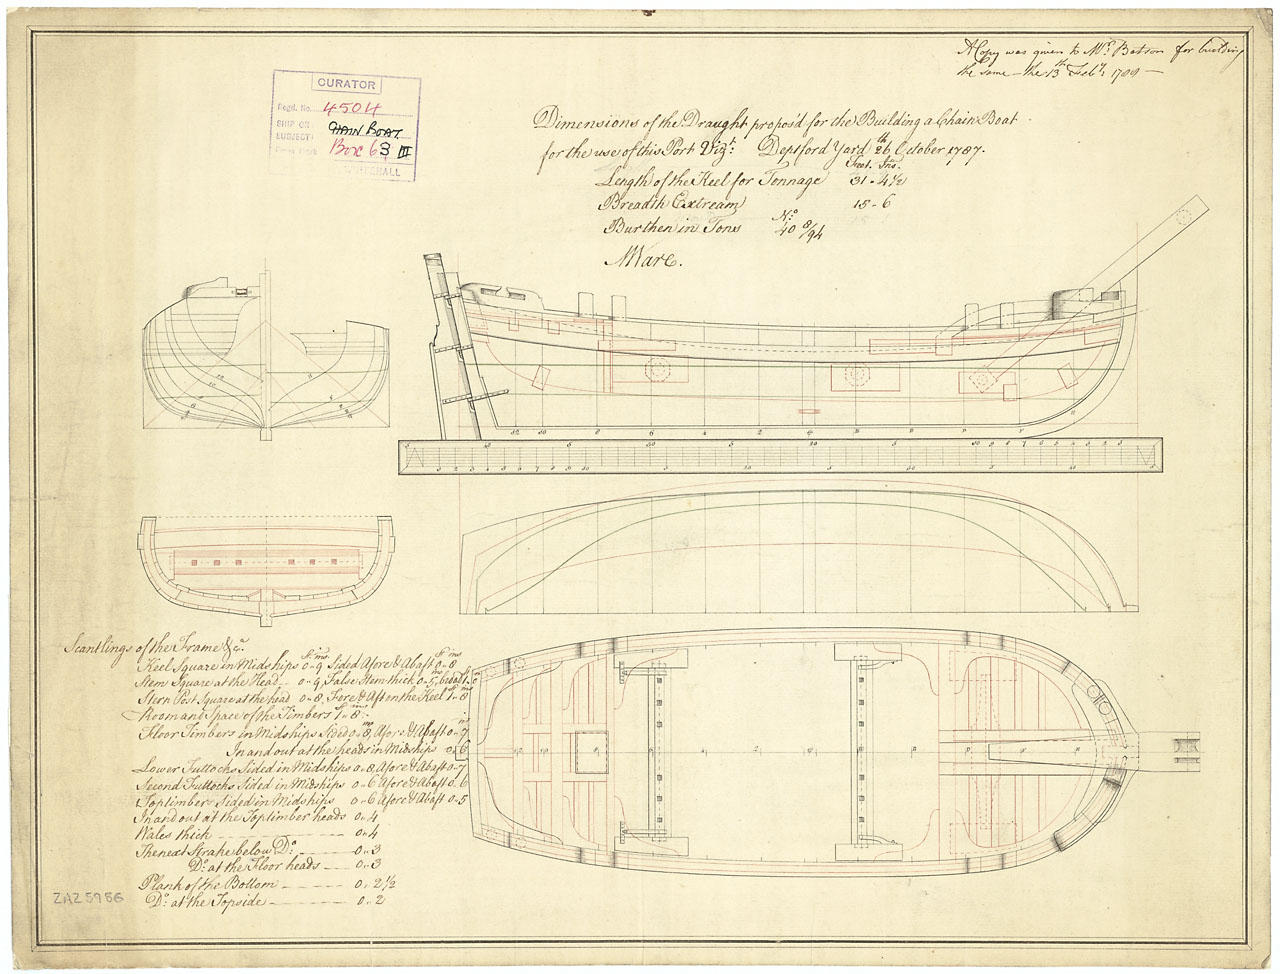 A Copy was given to Mr. Batson for building
the same - the 13th Feby. 1789 -
CURATOR
Regd. No. 4504
SHIP OR SUBJECT: CHAIN BOAT
Box 63 III
Dimensions of the Draught propos'd for the Building a Chain Boat
for the use of this Port Vizt: Deptford Yard 26th October 1787.
Feet. Ins.
Length of the Keel for Tonnage 31-4½
Breadth Extream 15-6
Burthen in Tons No: 40 8/94
M Ware.
Scantlings of the Frame &c.
Keel Square in Midships 0..9 Sided Afore & Abaft 0..8
Stem Square at the Head 0..9 False Stem thick 0..5, broad 1..0
Stern Post Square at the head 0..8, Fore & Aft on the Keel 1..8
Room and Space of the Timbers 1..8
Floor Timbers in Midships Sided 0..8, Afore & Abaft 0..7
In and out at the heads in Midships 0..6
Lower Futtocks Sided in Midships 0..8, Afore & Abaft 0..7
Second Futtocks Sided in Midships 0..6 Afore & Abaft 0..6
Toptimbers Sided in Midships 0..6 Afore & Abaft 0..5
In and out at the Toptimber heads 0..4
Wales thick 0..4
The next Strake below Do. 0..3
Do. at the Floor heads 0..3
Plank of the Bottom 0..2½
Do. at the Topside 0..2
ZAZ5956